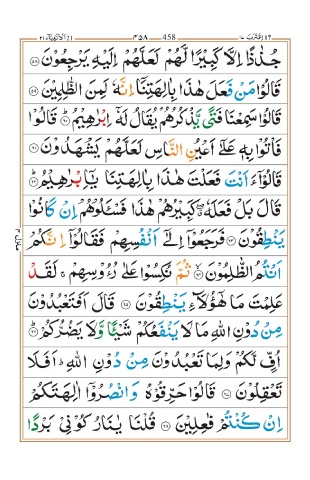 اقترب ١٧ ٤٥٨ 458 الانبيآء ٢١
جُذٰذًا اِلَّا كَبِيْرًا لَّهُمْ لَعَلَّهُمْ اِلَيْهِ يَرْجِعُوْنَ ۝٥٨
قَالُوْا مَنْ فَعَلَ هٰذَا بِاٰلِهَتِنَاۤ اِنَّهٗ لَمِنَ الظّٰلِمِيْنَ ۝٥٩
قَالُوْا سَمِعْنَا فَتًى يَّذْكُرُهُمْ يُقَالُ لَهٗۤ اِبْرٰهِيْمُ ۝٦٠ قَالُوْا
فَاْتُوْا بِهٖ عَلٰۤى اَعْيُنِ النَّاسِ لَعَلَّهُمْ يَشْهَدُوْنَ ۝٦١
قَالُوْۤا ءَاَنْتَ فَعَلْتَ هٰذَا بِاٰلِهَتِنَا يٰۤاِبْرٰهِيْمُ ۝٦٢
قَالَ بَلْ فَعَلَهٗ ۖ كَبِيْرُهُمْ هٰذَا فَسْـَٔلُوْهُمْ اِنْ كَانُوْا
يَنْطِقُوْنَ ۝٦٣ فَرَجَعُوْۤا اِلٰۤى اَنْفُسِهِمْ فَقَالُوْۤا اِنَّكُمْ
اَنْتُمُ الظّٰلِمُوْنَ ۝٦٤ ثُمَّ نُكِسُوْا عَلٰى رُءُوْسِهِمْ ۚ لَقَدْ
عَلِمْتَ مَا هٰۤؤُلَآءِ يَنْطِقُوْنَ ۝٦٥ قَالَ اَفَتَعْبُدُوْنَ
مِنْ دُوْنِ اللّٰهِ مَا لَا يَنْفَعُكُمْ شَيْـًٔا وَّلَا يَضُرُّكُمْ ۝٦٦
اُفٍّ لَّكُمْ وَلِمَا تَعْبُدُوْنَ مِنْ دُوْنِ اللّٰهِ ؕ اَفَلَا
تَعْقِلُوْنَ ۝٦٧ قَالُوْا حَرِّقُوْهُ وَانْصُرُوْۤا اٰلِهَتَكُمْ
اِنْ كُنْتُمْ فٰعِلِيْنَ ۝٦٨ قُلْنَا يٰنَارُ كُوْنِيْ بَرْدًا